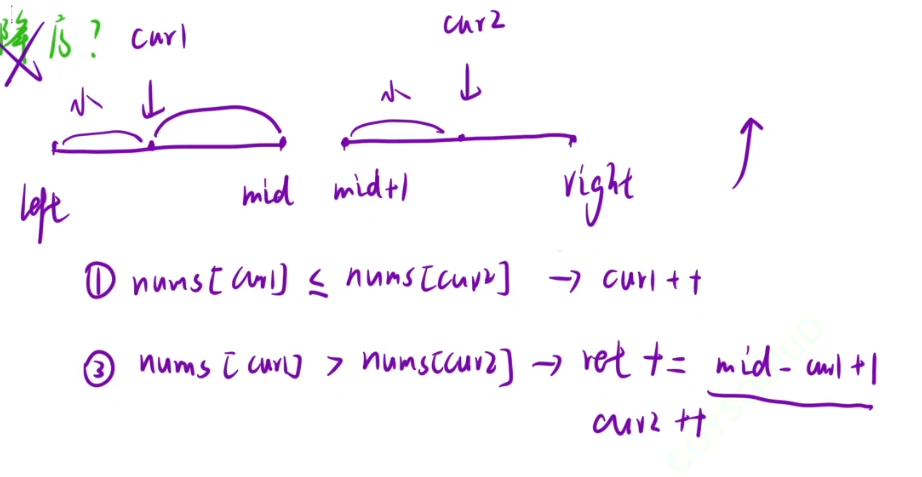 降序? cur1 cur2
小 小
left mid mid+1 right
① nums[cur1] ≤ nums[cur2] → cur1++
③ nums[cur1] > nums[cur2] → ret += mid - cur1 + 1
cur2++